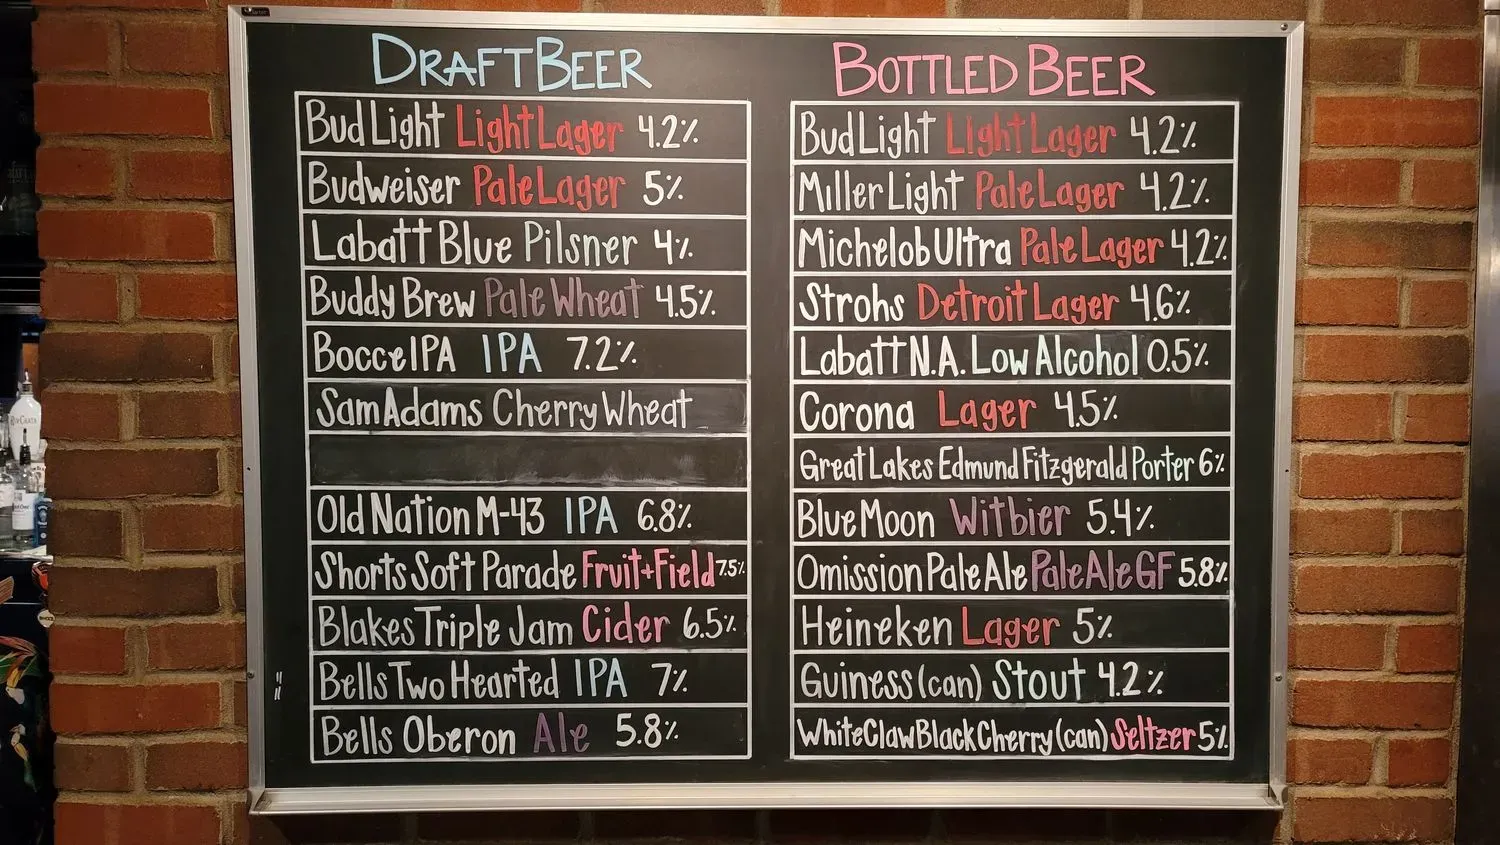 DRAFT BEER
Bud Light Light Lager 4.2%
Budweiser Pale Lager 5%
Labatt Blue Pilsner 4%
Buddy Brew Pale Wheat 4.5%
Bocce IPA IPA 7.2%
Sam Adams Cherry Wheat
Old Nation M-43 IPA 6.8%
Shorts Soft Parade Fruit+Field 7.5%
Blakes Triple Jam Cider 6.5%
Bells Two Hearted IPA 7%
Bells Oberon Ale 5.8%
BOTTLED BEER
Bud Light Light Lager 4.2%
Miller Light Pale Lager 4.2%
Michelob Ultra Pale Lager 4.2%
Strohs Detroit Lager 4.6%
Labatt N.A. Low Alcohol 0.5%
Corona Lager 4.5%
Great Lakes Edmund Fitzgerald Porter 6%
Blue Moon Witbier 5.4%
Omission Pale Ale Pale Ale GF 5.8%
Heineken Lager 5%
Guiness (can) Stout 4.2%
White Claw Black Cherry (can) Seltzer 5%